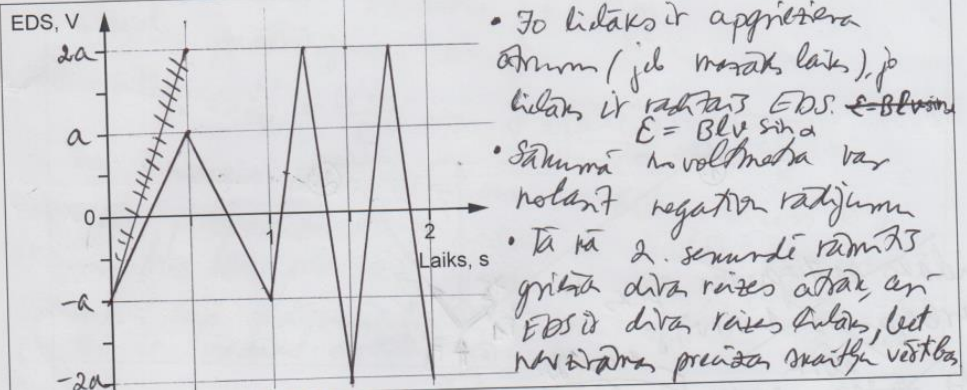 EDS, V
2a
a
0
-a
-2a
1
2
Laiks, s
• Jo lielāks ir apgrieziena
ātrums (jeb mazāks laiks), jo
lielāks ir radītais EDS. ε=Blv sinα
ε = Blv sinα
• Sākumā no voltmetra var
nolasīt negatīvu rādījumu
• Tā kā 2. sekundē rāmītis
griežas divas reizes ātrāk, arī
EDS ir divas reizes lielāks, bet
nav zināmas precīzas skaitļu vērtības